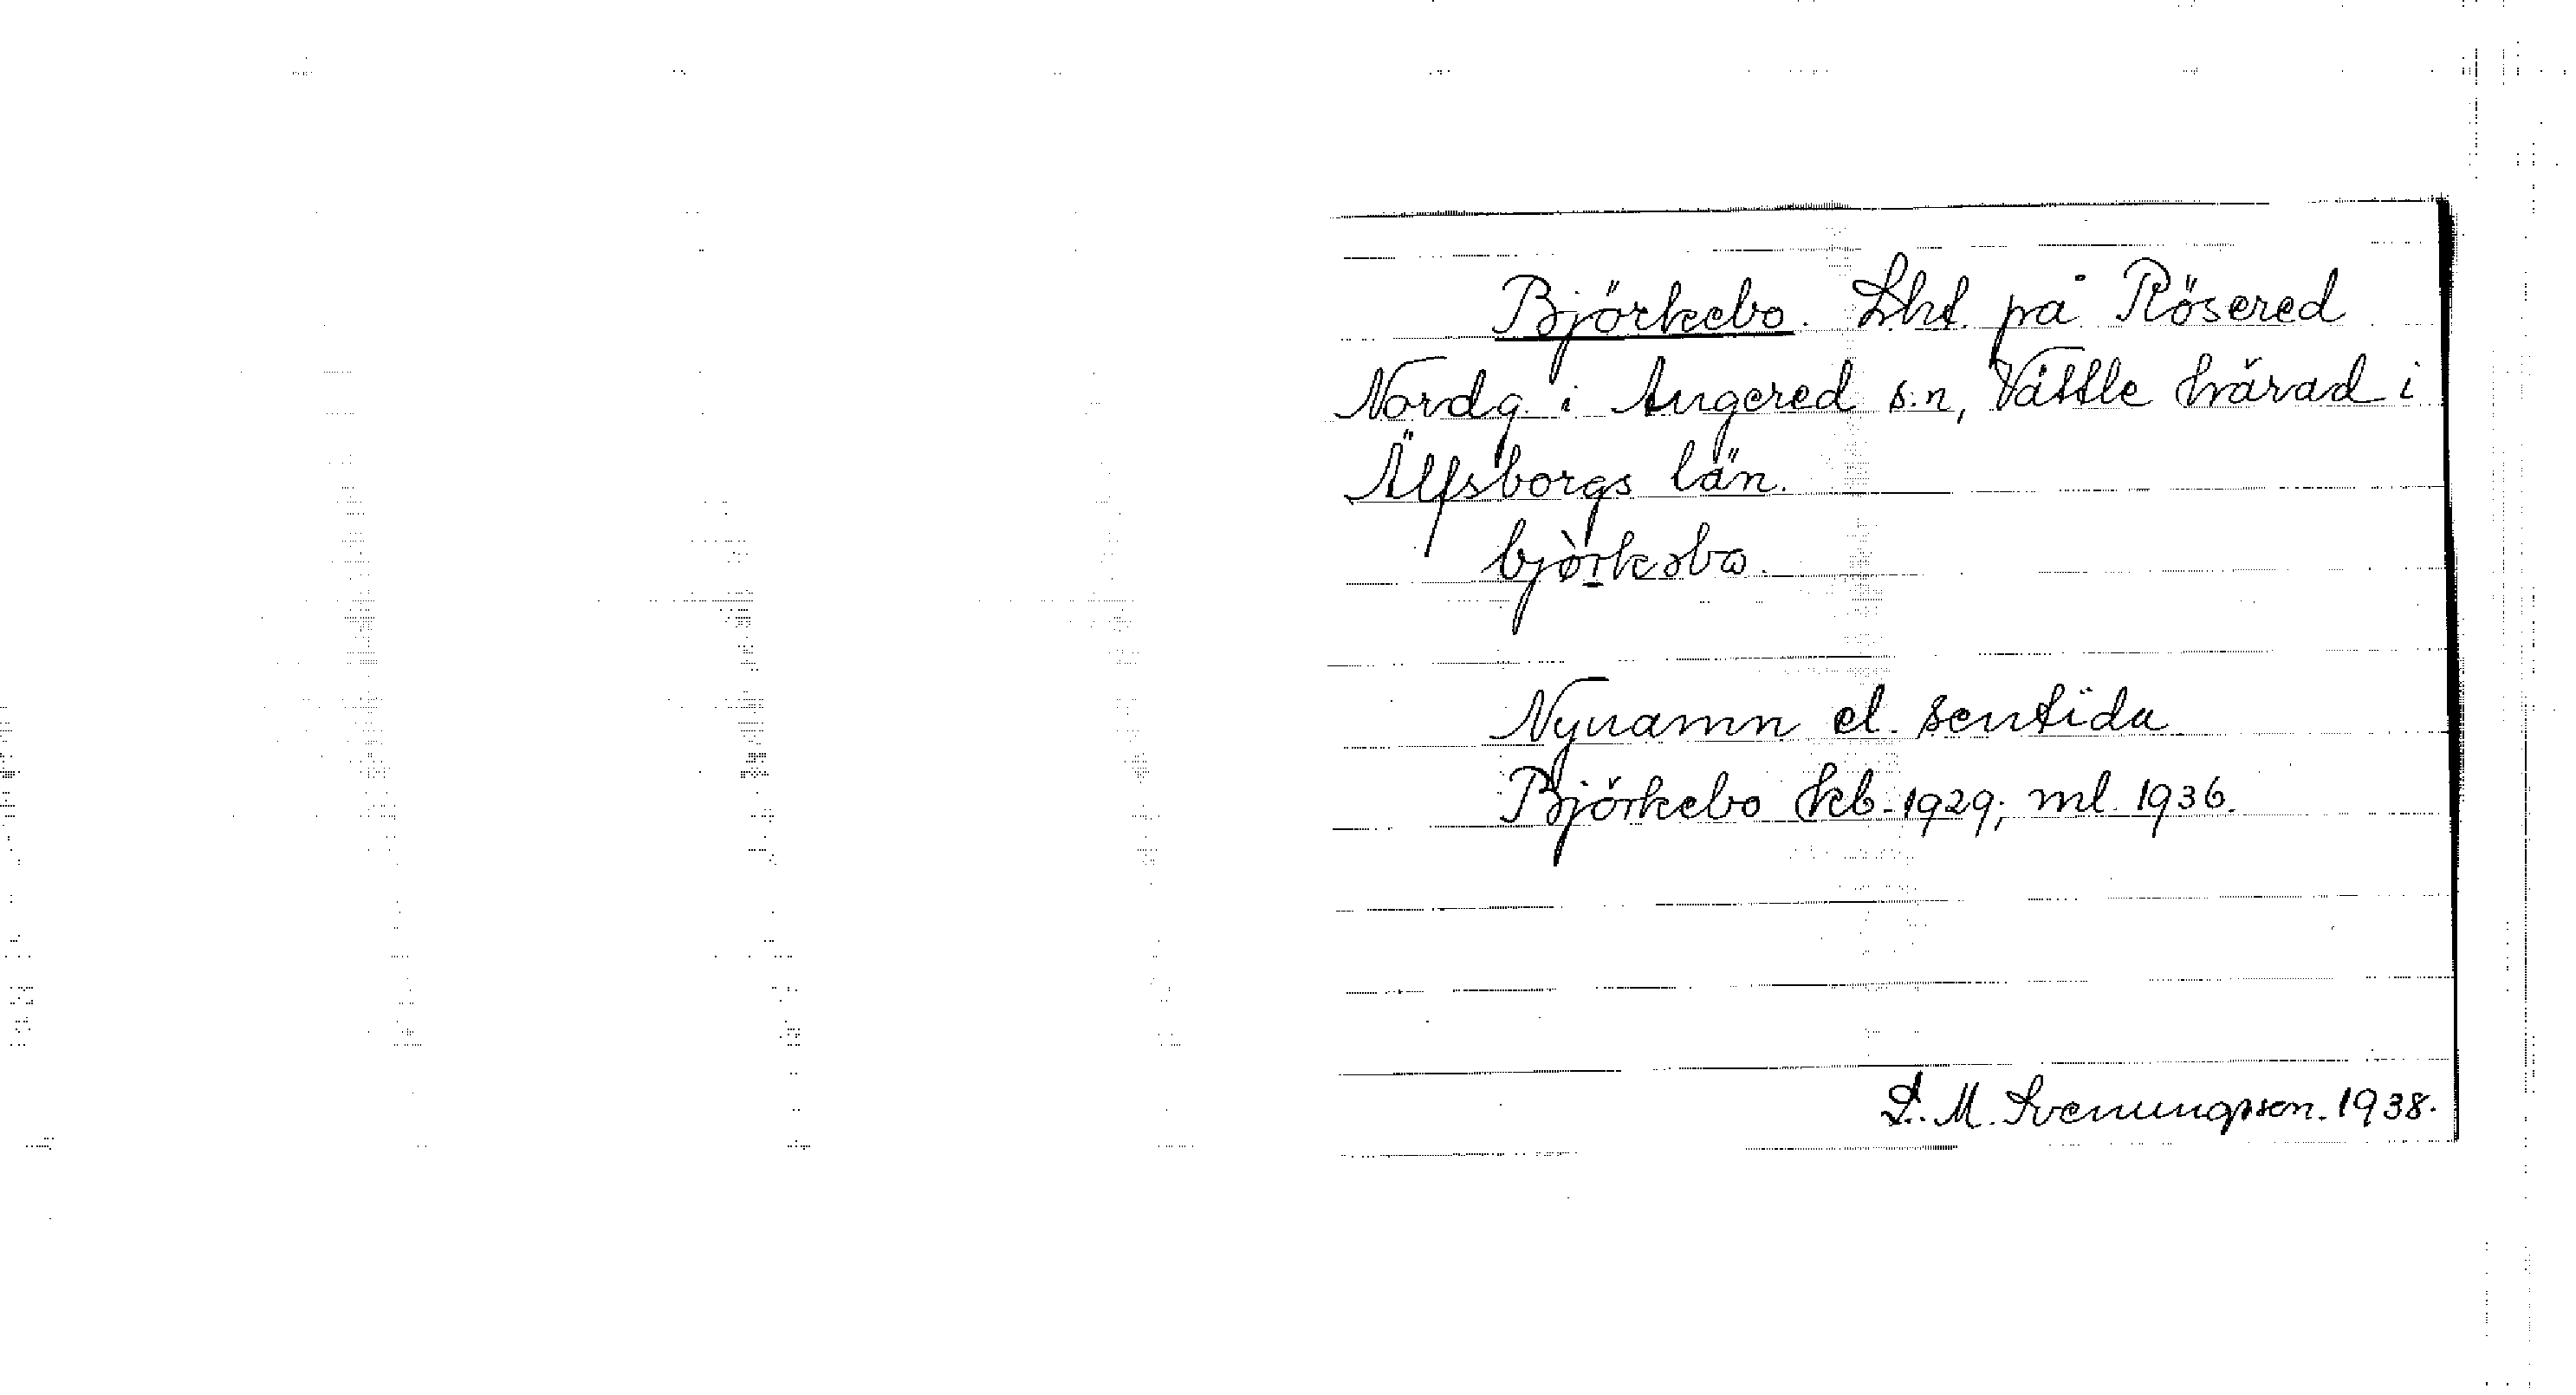 Björkebo. Lht. på Rösered
Nordg. i Angered s.n, Vättle härad i
Älfsborgs län.
bjòrkəbo.
Nynamn el. sentida
Björkebo kb. 1929; ml. 1936.
S. M. Svenungsson. 1938.